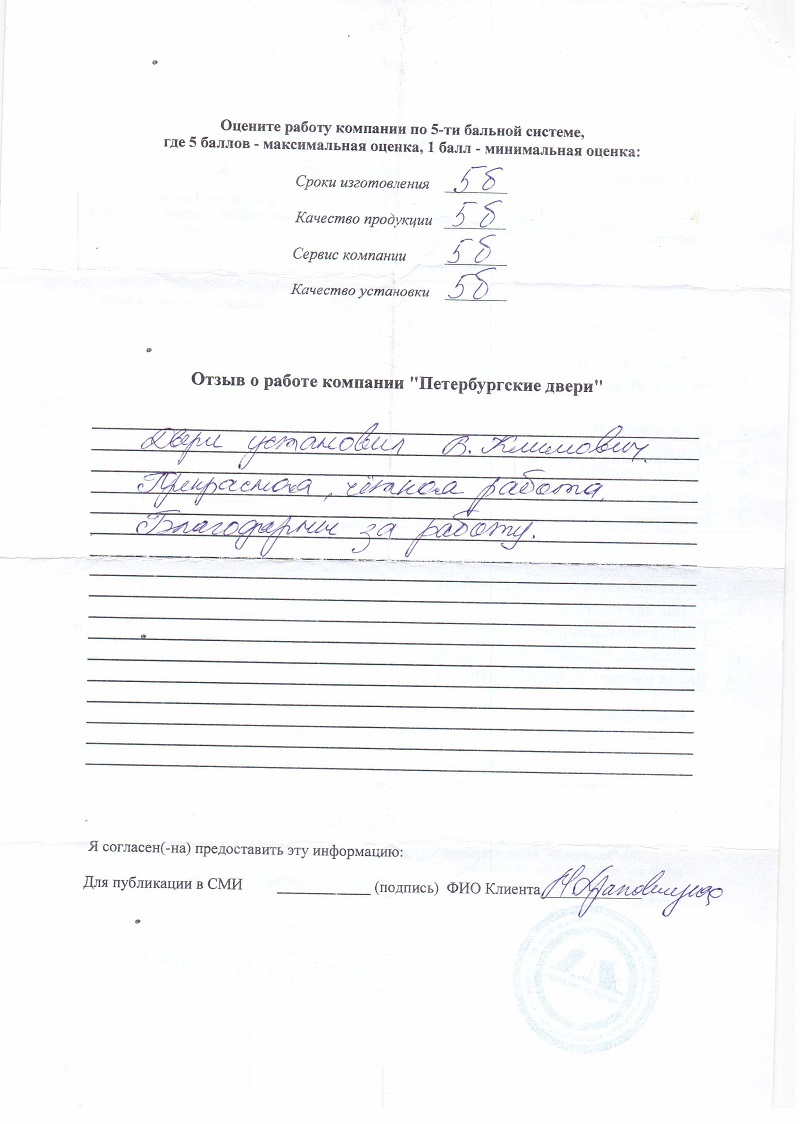 Оцените работу компании по 5-ти бальной системе,
где 5 баллов - максимальная оценка, 1 балл - минимальная оценка:
Сроки изготовления 5 б
Качество продукции 5 б
Сервис компании 5 б
Качество установки 5 б
Отзыв о работе компании "Петербургские двери"
Двери установил В. Климович.
Прекрасная, чёткая работа.
Благодарим за работу.
Я согласен(-на) предоставить эту информацию:
Для публикации в СМИ ____________ (подпись) ФИО Клиента